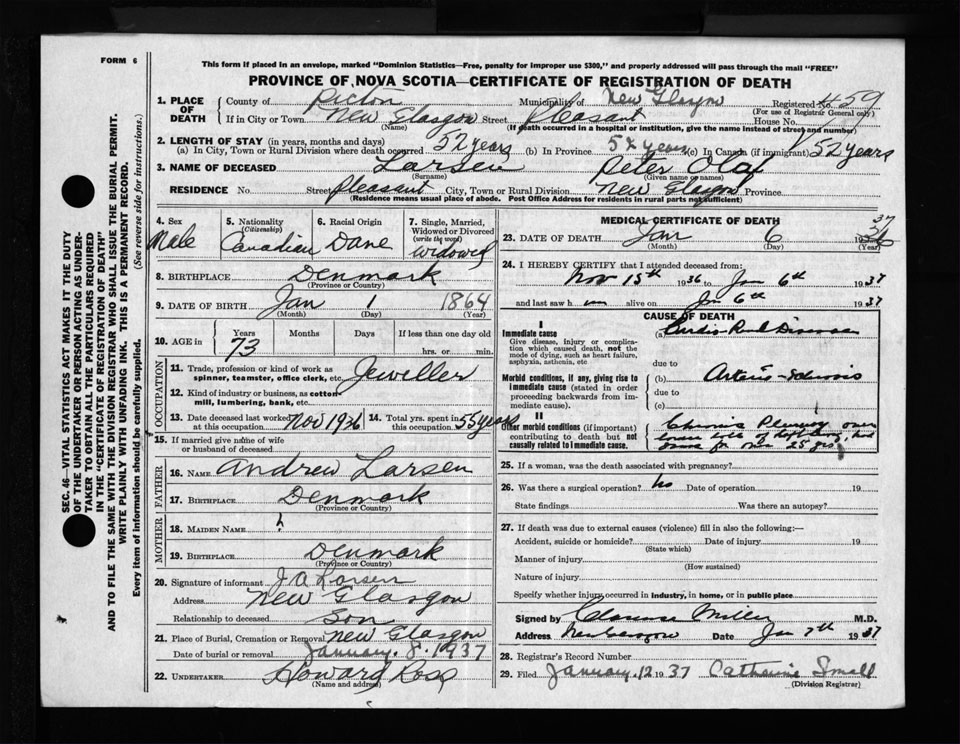 FORM 6
This form if placed in an envelope, marked "Dominion Statistics—Free, penalty for improper use $300," and properly addressed will pass through the mail "FREE"
PROVINCE OF NOVA SCOTIA—CERTIFICATE OF REGISTRATION OF DEATH
SEC. 46—VITAL STATISTICS ACT MAKES IT THE DUTY
OF THE UNDERTAKER OR PERSON ACTING AS UNDER-
TAKER TO OBTAIN ALL THE PARTICULARS REQUIRED
IN THE "CERTIFICATE OF REGISTRATION OF DEATH"
AND TO FILE THE SAME WITH THE DIVISION REGISTRAR WHO SHALL ISSUE THE BURIAL PERMIT.
WRITE PLAINLY WITH UNFADING INK. THIS IS A PERMANENT RECORD.
Every item of information should be carefully supplied. (See reverse side for instructions.)
1. PLACE OF DEATH County of Pictou Municipality of New Glasgow Registered No. 459
(For use of Registrar General only)
If in City or Town New Glasgow Street Pleasant House No.
(Name) (If death occurred in a hospital or institution, give the name instead of street and number)
2. LENGTH OF STAY (in years, months and days)
(a) In City, Town or Rural Division where death occurred 52 years (b) In Province 52 years (c) In Canada (if immigrant) 52 years
3. NAME OF DECEASED Larsen Peter Olaf
(Surname) (Given name or names)
RESIDENCE No. Street Pleasant City, Town or Rural Division New Glasgow Province
(Residence means usual place of abode. Post Office Address for residents in rural parts not sufficient)
4. Sex Male
5. Nationality (Citizenship) Canadian
6. Racial Origin Dane
7. Single, Married, Widowed or Divorced (write the word) Widowed
8. BIRTHPLACE Denmark
(Province or Country)
9. DATE OF BIRTH Jan 1 1864
(Month) (Day) (Year)
10. AGE in Years 73 Months Days If less than one day old hrs. or min.
OCCUPATION
11. Trade, profession or kind of work as spinner, teamster, office clerk, etc. Jeweller
12. Kind of industry or business, as cotton-mill, lumbering, bank, etc.
13. Date deceased last worked at this occupation Nov 1936 14. Total yrs. spent in this occupation 55 years
15. If married give name of wife or husband of deceased
FATHER
16. NAME Andrew Larsen
17. BIRTHPLACE Denmark
(Province or Country)
MOTHER
18. MAIDEN NAME ?
19. BIRTHPLACE Denmark
(Province or Country)
20. Signature of informant J A Larsen
Address New Glasgow
Relationship to deceased Son
21. Place of Burial, Cremation or Removal New Glasgow
Date of burial or removal January. 8. 1937
22. UNDERTAKER Howard Ross
(Name and address)
MEDICAL CERTIFICATE OF DEATH
23. DATE OF DEATH Jan 6 1936 37
(Month) (Day) (Year)
24. I HEREBY CERTIFY that I attended deceased from:
Nov 15th 1936 to Jan 6th 1937
and last saw him alive on Jan 6th 1937
CAUSE OF DEATH
I
Immediate cause
Give disease, injury or complication which caused death, not the mode of dying, such as heart failure, asphyxia, asthenia, etc
(a) Cardio Renal Disease
due to
Morbid conditions, if any, giving rise to immediate cause (stated in order proceeding backwards from immediate cause).
(b) Arterio-sclerosis
due to
(c)
II
Other morbid conditions (if important) contributing to death but not causally related to immediate cause.
Chronic Pleurisy over
for over 25 yrs
25. If a woman, was the death associated with pregnancy?
26. Was there a surgical operation? No Date of operation 19
State findings Was there an autopsy?
27. If death was due to external causes (violence) fill in also the following:—
Accident, suicide or homicide? Date of injury 19
(State which)
Manner of injury
(How sustained)
Nature of injury
Specify whether injury occurred in industry, in home, or in public place
Signed by Clarence Miller M.D.
Address New Glasgow Date Jan 7th 1937
28. Registrar's Record Number
29. Filed January. 12 1937 Catherine Small
(Division Registrar)